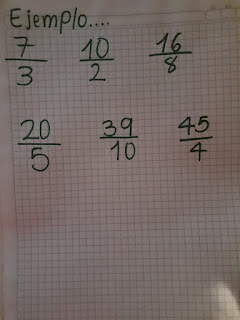 Ejemplo....
7/3 10/2 16/8
20/5 39/10 45/4